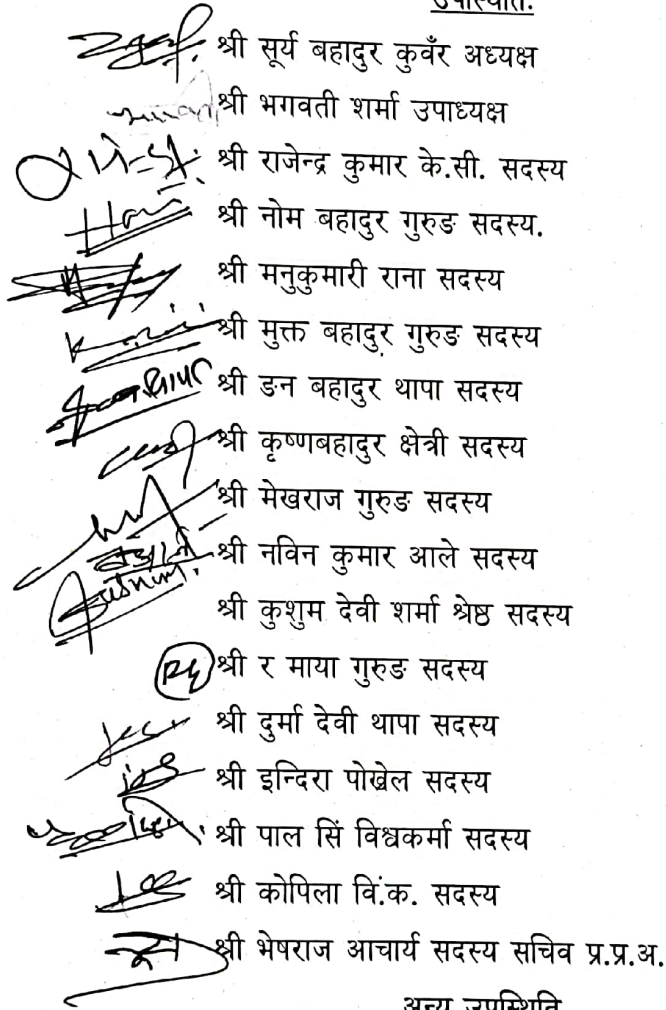 उपस्थितिः
श्री सूर्य बहादुर कुवँर अध्यक्ष
श्री भगवती शर्मा उपाध्यक्ष
श्री राजेन्द्र कुमार के.सी. सदस्य
श्री नोम बहादुर गुरुङ सदस्य.
श्री मनुकुमारी राना सदस्य
श्री मुक्त बहादुर गुरुङ सदस्य
थापा श्री ङन बहादुर थापा सदस्य
श्री कृष्णबहादुर क्षेत्री सदस्य
श्री मेखराज गुरुङ सदस्य
श्री नविन कुमार आले सदस्य
श्री कुशुम देवी शर्मा श्रेष्ठ सदस्य
श्री र माया गुरुङ सदस्य
श्री दुर्मा देवी थापा सदस्य
श्री इन्दिरा पोखेल सदस्य
श्री पाल सिं विश्वकर्मा सदस्य
श्री कोपिला वि.क. सदस्य
श्री भेषराज आचार्य सदस्य सचिव प्र.प्र.अ.
अन्य उपस्थिति